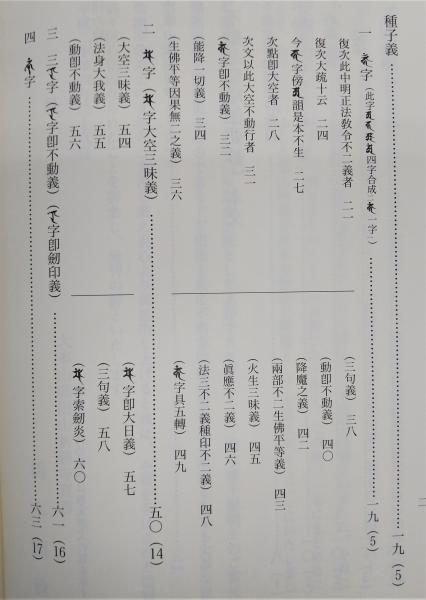 種子義……一九(5)
一 字(此字四字合成一字)……一九(5)
復次此中明正法教令不二義者 二一
復次大疏十云 二四
今字傍韻是本不生 二七
次點卽大空者 二八
次文以此大空不動行者 三一
(字卽不動義) 三二
(能降一切義) 三四
(生佛平等因果無二之義) 三六
(三句義) 三八
(動卽不動義) 四〇
(降魔之義) 四二
(兩部不二生佛平等義) 四三
(火生三昧義) 四五
(眞應不二義) 四六
(法三不二義種印不二義) 四八
(字具五轉) 四九
二 字(字大空三昧義)……五〇(14)
(大空三昧義) 五四
(法身大我義) 五五
(動卽不動義) 五六
(字卽大日義) 五七
(三句義) 五八
(字索劒炎) 六〇
三 字(字卽不動義)(字卽劒印義)……六一(16)
四 字……六三(17)
二